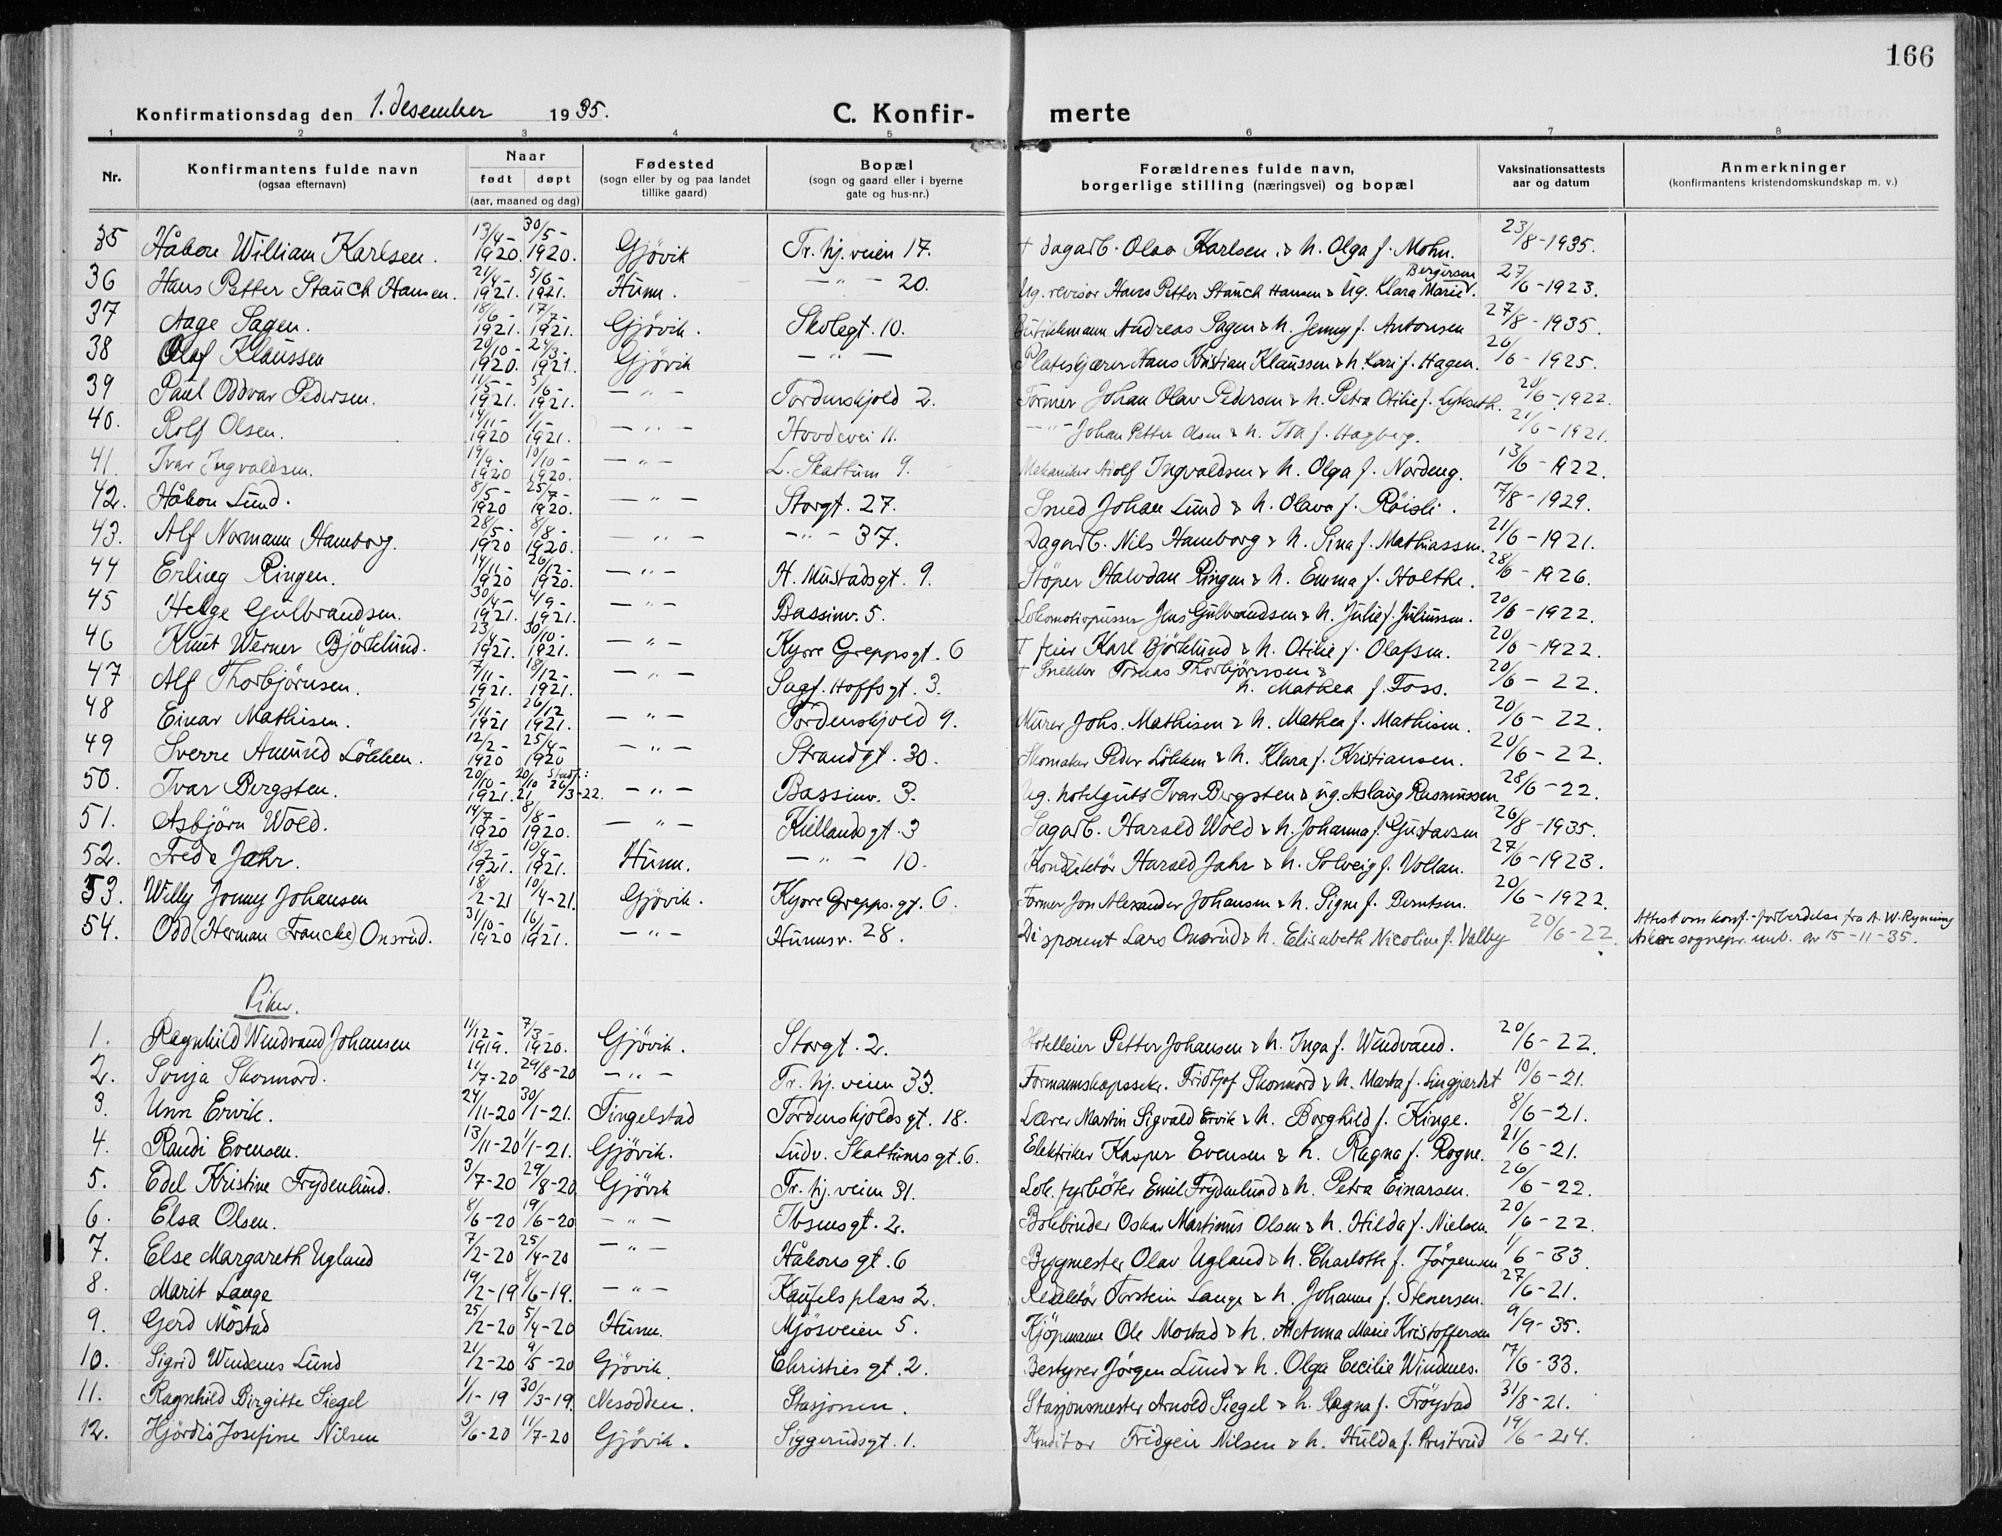 166
Konfirmationsdag den 1. desember 1935.
C. Konfir- merte
1 2 3 4 5 6 7 8
Nr. | Konfirmantens fulde navn (ogsaa efternavn) | Naar født døpt (aar, maaned og dag) | Fødested (sogn eller by og paa landet tillike gaard) | Bopæl (sogn og gaard eller i byerne gate og hus-nr.) | Forældrenes fulde navn, borgerlige stilling (næringsvei) og bopæl | Vaksinationsattests aar og datum | Anmerkninger (konfirmantens kristendomskundskap m. v.)
35 Håkon William Karlsen. 13/4-1920. 30/5-1920. Gjövik Tr. hj. veien 17. † dagarb. Olav Karlsen & h. Olga f. Mohn. 23/8-1935.
36 Hans Petter Stauch Hansen. 21/4-1921. 5/6-1921. Hunn. -"- 20. Ug. revisor Hans Petter Stauch Hansen & Ug. Klara Marie Bergersen. 27/6-1923.
37 Aage Sagen. 18/6-1921. 17/7-1921. Gjövik. Skolegt. 10. Andreas Sagen & h. Jenny f. Antonsen 27/8-1935.
38 Olaf Klaussen 20/10-1920. 24/3-1921. Gjövik -"- Hans Kristian Klaussen & h. Kari f. Hagen. 26/6-1925.
39 Paul Oddvar Pedersen. 11/5-1921. 5/6-1921. -"- Tordenskjold 2. Former Johan Olav Pedersen & h. Petra Otilie f. Lykseth. 20/6-1922.
40. Rolf Olsen. 14/11-1920 1/1-1921. -"- Hovdevei 11. -"- Johan Petter Olsen & h. Ida f. Hagberg. 21/6-1921.
41. Ivar Ingvaldsen. 19/9-1920 10/10-1920. -"- L. Skattum 9. Mekaniker Adolf Ingvaldsen & h. Olga f. Nordeng. 13/6-1922.
42. Håkon Lund. 8/5-1920 25/7-1920. -"- Storgt. 27. Smed Johan Lund & h. Olava f. Röisli. 7/8-1929.
43. Alf Normann Hamborg. 28/5-1920 8/8-1920. -"- -"- 37. Dagarb. Nils Hamborg & h. Sina f. Mathiassen. 21/6-1921.
44 Erling Ringen. 14/11-1920 26/12-1920. -"- H. Mustadsgt. 9. Støper Halvdan Ringen & h. Emma f. Holthe. 28/6-1926.
45 Helge Gulbrandsen. 30/4-1921. 4/9-1921. -"- Bassinv. 5. Lokomotivpusser Jens Gulbrandsen & h. Julie f. Juliussen. 20/6-1922.
46 Knut Werner Björklund. 23/4-1921. 30/10-1921. -"- Kyrre Greppsgt. 6 † feier Karl Björklund & h. Otilie f. Olafsen. 20/6-1922.
47 Alf Thorbjörnsen. 7/11-1921. 18/12-1921. -"- Sagf. Hoffsgt. 3. † Snekker Tomas Thorbjørnsen & h. Mathea f. Foss. 20/6-22.
48 Einar Mathisen. 5/11-1921 26/12 1921. -"- Tordenskjold 9. Murer Johs. Mathisen & h. Mathea f. Mathisen. 20/6-22.
49 Sverre Amund Lökken. 12/2-1920 25/4-1920 -"- Strandgt. 30. Skomaker Peder Lökken & h. Klara f. Kristiansen. 20/6-22.
50. Ivar Bergsten. 20/10-1921. 20/10 21 Stadf.: 26/3-22. -"- Bassinv. 3. Ug. hotelgutt Ivar Bergsten & ug. Aslaug Rasmussen 28/6-22.
51. Asbjörn Wold. 14/7-1920 8/8-1920. -"- Kiellandsgt. 3 Sagarb. Harald Wold & h. Johanna f. Gustavsen 26/8-1935.
52. Frede Jahr. 18/2-1921. 10/4-1921. Hunn. -"- 10. Konduktør Harald Jahr & h. Solveig f. Vollan. 27/6-1923.
53. Willy Jonny Johansen 18/2-21 10/4-21. Gjövik. Kyrre Grepps. gt. 6. Former Jon Alexander Johansen & h. Signe f. Berntsen. 20/6-1922.
54. Odd (Herman Francke) Onsrud. 31/10-1920 16/1-1921. -"- Hunnsv. 28. Disponent Lars Onsrud & h. Elisabeth Nicoline f. Valby 20/6-22. Attest om konf.-forberedelse fra A. W. Ryning Asker sognepr. emb. av 15-11-35.
Piker.
1. Ragnhild Windrand Johansen 11/12-1919. 7/3-1920. Gjövik. Storgt. 2. Hotelleier Petter Johansen & h. Inga f. Windrand. 20/6-22.
2. Sonja Skomord. 11/7-20 29/8-20 -"- Tr. hj. veien 33. Formannskapssekr. Fridtjof Skomord & h. Marta f. Lingjærdet 10/6-21.
3. Unn Ervik. 24/11-20 30/1-21. Tingelstad Tordenskjoldsgt. 18. Lærer Martin Sigvald Ervik & h. Borghild f. Kinge. 8/6-21.
4. Randi Evensen. 13/11-20 1/1-21. Gjövik. Ludv. Skattumsgt. 6. Elektriker Kasper Evensen & h. Ragna f. Rogne. 21/6-21.
5. Edel Kristine Frydenlund. 3/7-20 29/8-20 Gjövik Tr. hj. veien 31. Lok. fyrbøter Emil Frydenlund & h. Petra Einarsen. 26/6-22.
6. Elsa Olsen. 8/6-20 19/6-20 -"- Ibsensgt. 2. Bokbinder Oskar Martinius Olsen & h. Hilda f. Nielsen. 20/6-22.
7. Else Margareth Ugland 7/2-20 25/4-20 -"- Håkonsgt. 6 Bygmester Olav Ugland & h. Charlotte f. Jörgensen 1/6-33.
8. Marit Lange 19/2-19 8/6-19. -"- Kaufelsplass 2. Redaktör Torstein Lange & h. Johanne f. Stenersen. 27/6-21.
9. Gerd Möstad 25/2-20 5/4-20 Hunn. Mjösveien 5. Kjöpmann Ole Mostad & h. Anna Marie Kristoffersen 9/9-35.
10. Sigrid Windenes Lund 21/2-20 9/5-20 Gjövik. Christiesgt. 2. Bestyrer Jörgen Lund & h. Olga Cecilie Windnes. 7/6-33.
11. Ragnhild Birgitte Siegel 1/1-19 30/3-19. Nesodden. Stasjonen. Stasjonsmester Arnold Siegel & h. Ragna f. Fröystad 31/8-21.
12. Hjördis Josefine Nilsen 3/6-20 11/7-20 Gjövik. Siggerudsgt. 1. Konditor Fridgeir Nilsen & h. Hulda f. Pristrud 19/6-24.